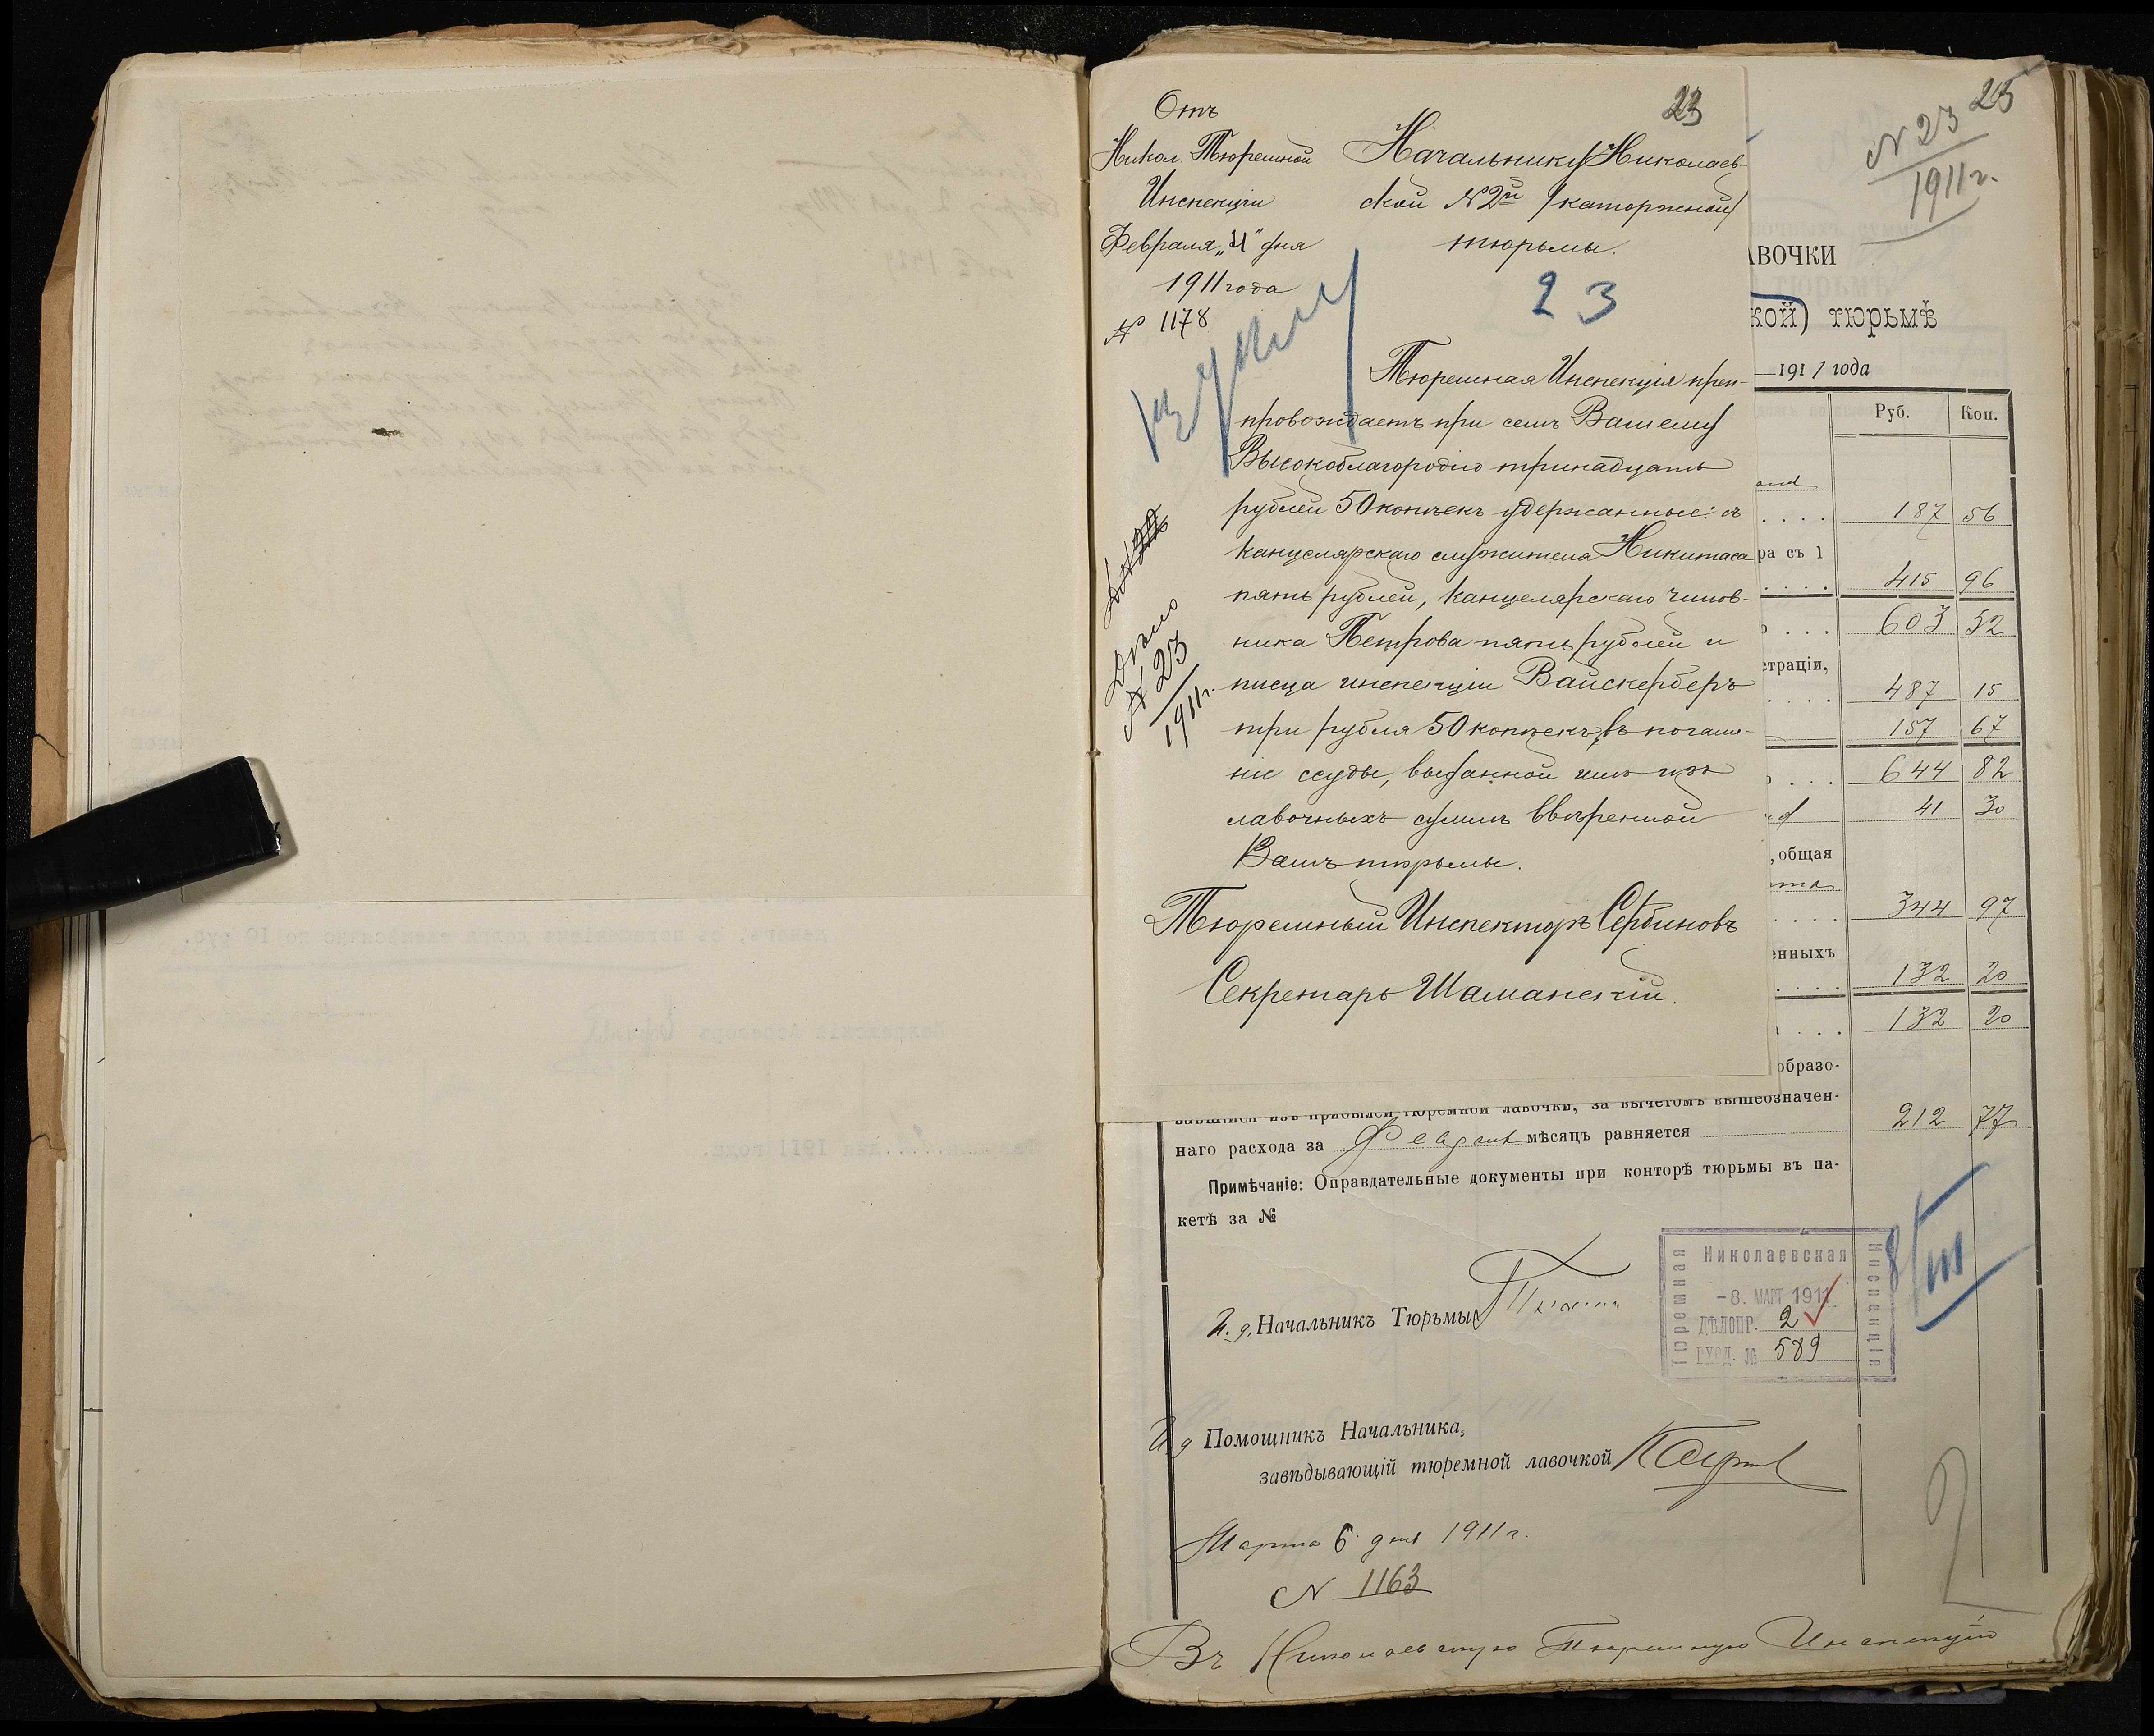 Отъ
Никол. Тюремной
Инспекціи
Февраля „21“ дня
1911 года
№ 1178
23
Начальнику Николаев-
ской №2й /каторжной/
тюрьмы.
23
Тюремная Инспекція преп-
провождаетъ при семъ Вашему
Высокоблагородію тринадцать
рублей 50 копѣекъ удержанные: съ
канцелярскаго служителя Никитаса
пять рублей, канцелярскаго чинов-
ника Петрова пять рублей и
писца инспекціи Вайскерберъ
три рубля 50 копѣекъ, въ погаше-
ніе ссуды, выданной имъ изъ
лавочныхъ суммъ ввѣренной
Вамъ тюрьмы.
Тюремный Инспекторъ Сербиновъ
Секретарь Шаманскій.
Дѣло
№ 23
1911 г.
25
№ 23
1911 г.
АВОЧКИ
кой) тюрьмѣ
191 1 года
Руб. Коп.
187 56
ра съ 1
415 96
603 52
страціи,
487 15
157 67
644 82
41 30
, общая
344 97
енныхъ
132 20
132 20
образо-
вавшійся изъ прибылей тюремной лавочки, за вычетомъ вышеозначен-
212 77
наго расхода за Февраль мѣсяцъ равняется
Примѣчаніе: Оправдательные документы при конторѣ тюрьмы въ па-
кетѣ за №
8/III
И. д. Начальникъ Тюрьмы
Николаевская
Тюремная
Инспекція
-8. МАРТ 1911
ДѢЛОПР. 2
ВХОД. № 589
И д Помощникъ Начальника,
завѣдывающій тюремной лавочкой
Марта 6 дня 1911 г.
№ 1163
Въ Николаевскую Тюремную Инспекцію